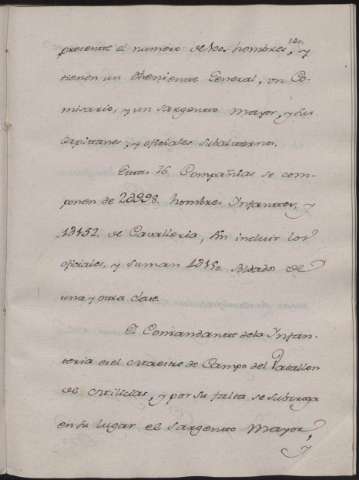 presente el numero de 800. hombres, y
tienen un theniente General, un Co-
misario, y un Sargento mayor, y sus
Capitanes, y oficiales subalternos.
Estas 76 Compañias se com-
ponen de 2.998 hombres Infantes, y
1.152 de Cavalleria, sin incluir los
oficiales, y suman 4.150 de
una y otra clase.
El Comandante de la Infan-
teria es el Maestre de Campo del Batallon
de Milicias, y por su falta se subroga
en su lugar el Sargento Mayor,
y